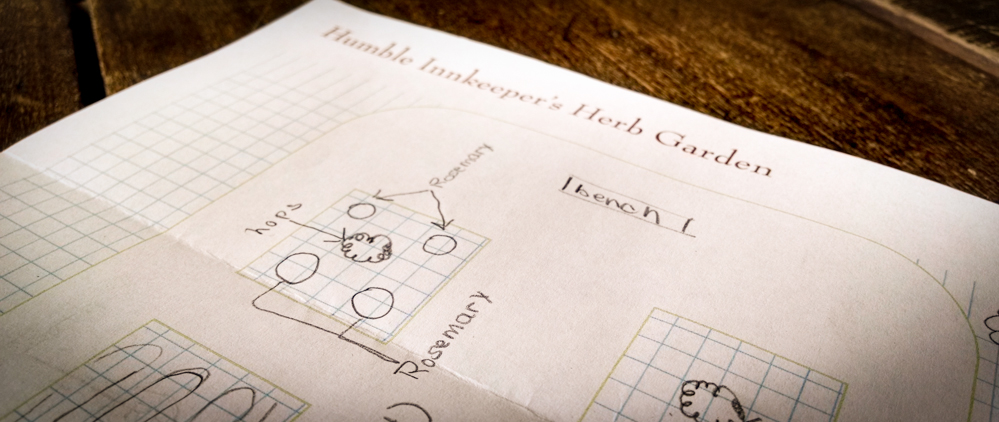 Humble Innkeeper's Herb Garden
Rosemary
bench
hops
Rosemary